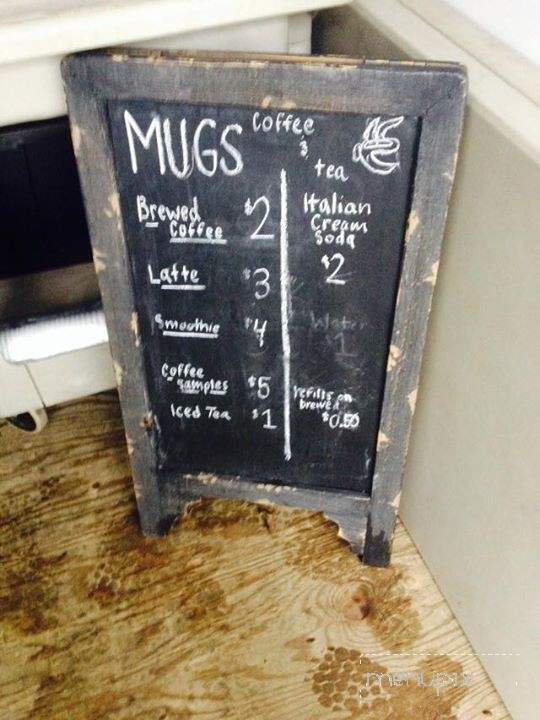 MUGS Coffee
&
tea
Brewed
Coffee $2
Latte $3
Smoothie $4
Coffee
Samples $5
Iced Tea $1
Italian
Cream
Soda
$2
Water
$1
refills on
brewed
$0.50
menupix